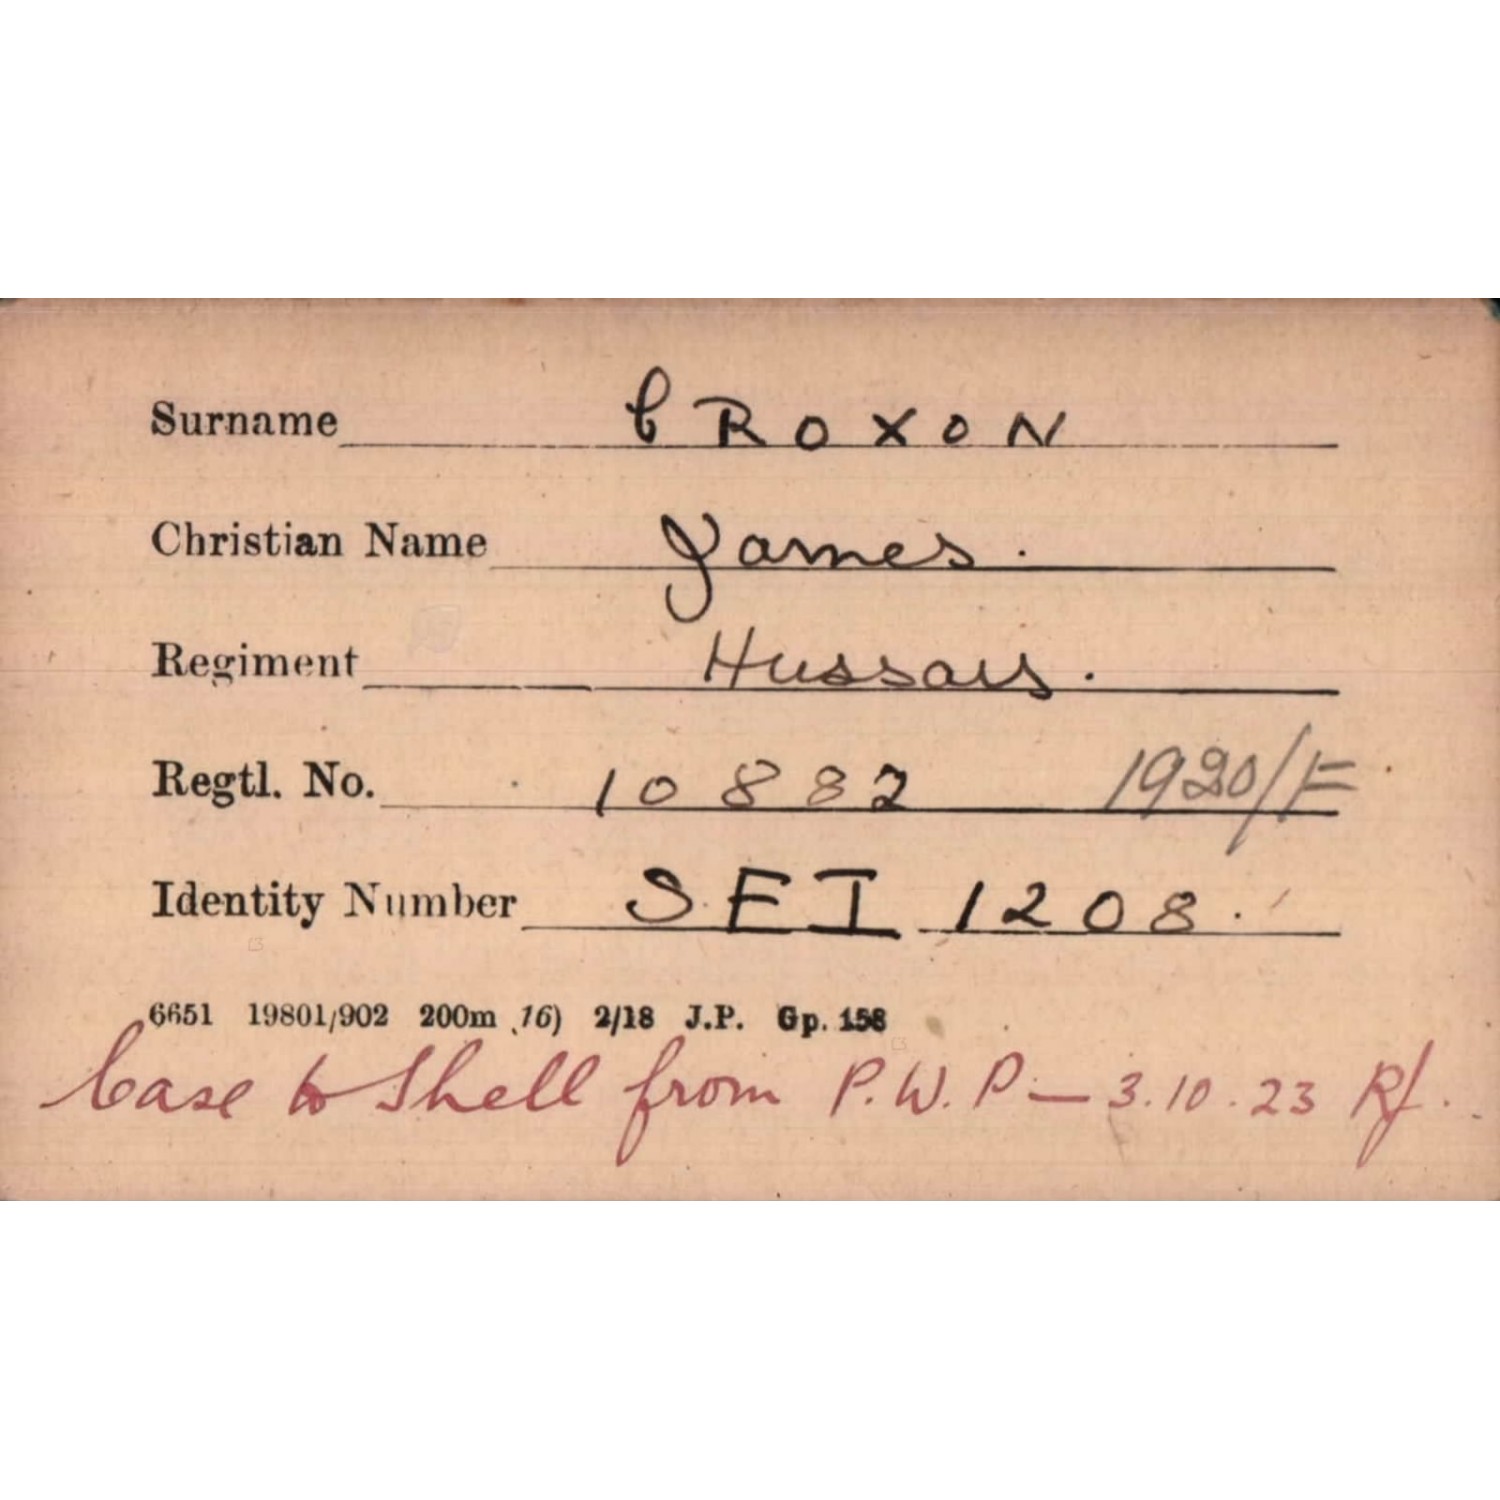 Surname CROXON
Christian Name James.
Regiment Hussars.
Regtl. No. 10882 1920/F
Identity Number S.EI 1208.
6651 19801/902 200m 16) 2/18 J.P. Gp. 158
Case to Shell from P.W.P — 3.10.23 Rf.